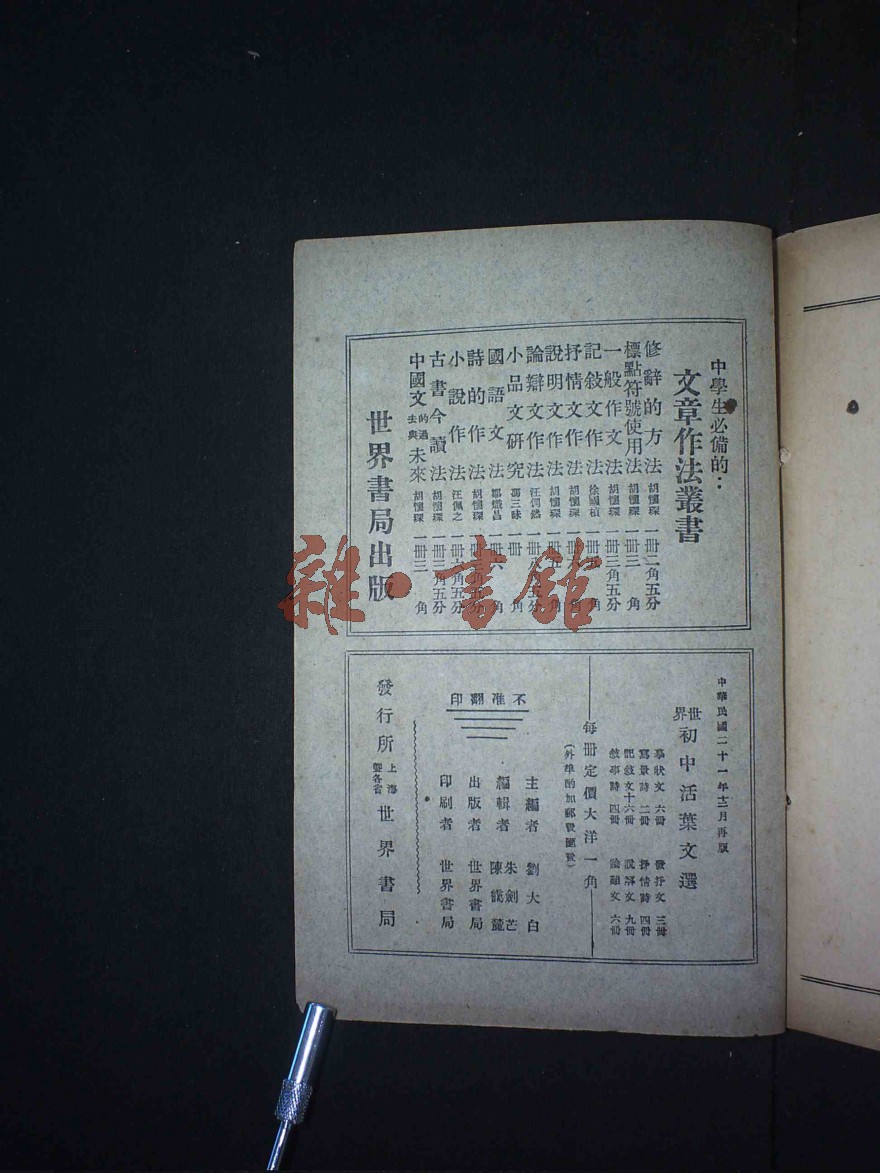 中學生必備的：
文章作法叢書
修辭的方法 胡懷琛 一冊二角五分
標點符號使用法 胡懷琛 一冊三角
一般作文法 胡懷琛 一冊三角五分
記敍文作法 徐國楨 一冊五角
抒情文作法 胡懷琛 一冊 角
說明文作法 胡懷琛 一冊五角
論辯文作法 汪倜然 一冊 角五分
小品文研究 馮三昧 一冊 角
國語文法 鄒熾昌 一冊六角
詩的作法 胡懷琛 一冊三角五分
小說作法 汪佩之 一冊六角五分
古書今讀法 胡懷琛 一冊三角五分
中國文的過去與未來 胡懷琛 一冊三角
世界書局出版
中華民國二十一年十二月再版
世界初中活葉文選
摹狀文 六冊 發抒文 三冊
寫景詩 二冊 抒情詩 四冊
記敘文十六冊 說解文 九冊
敘事詩 四冊 論難文 六冊
每冊定價大洋一角
(外埠酌加郵費匯費)
不准翻印
主編者 劉大白
編輯者 朱劍芒 陳靄麓
出版者 世界書局
印刷者 世界書局
發行所 上海暨各省 世界書局
雜·書館